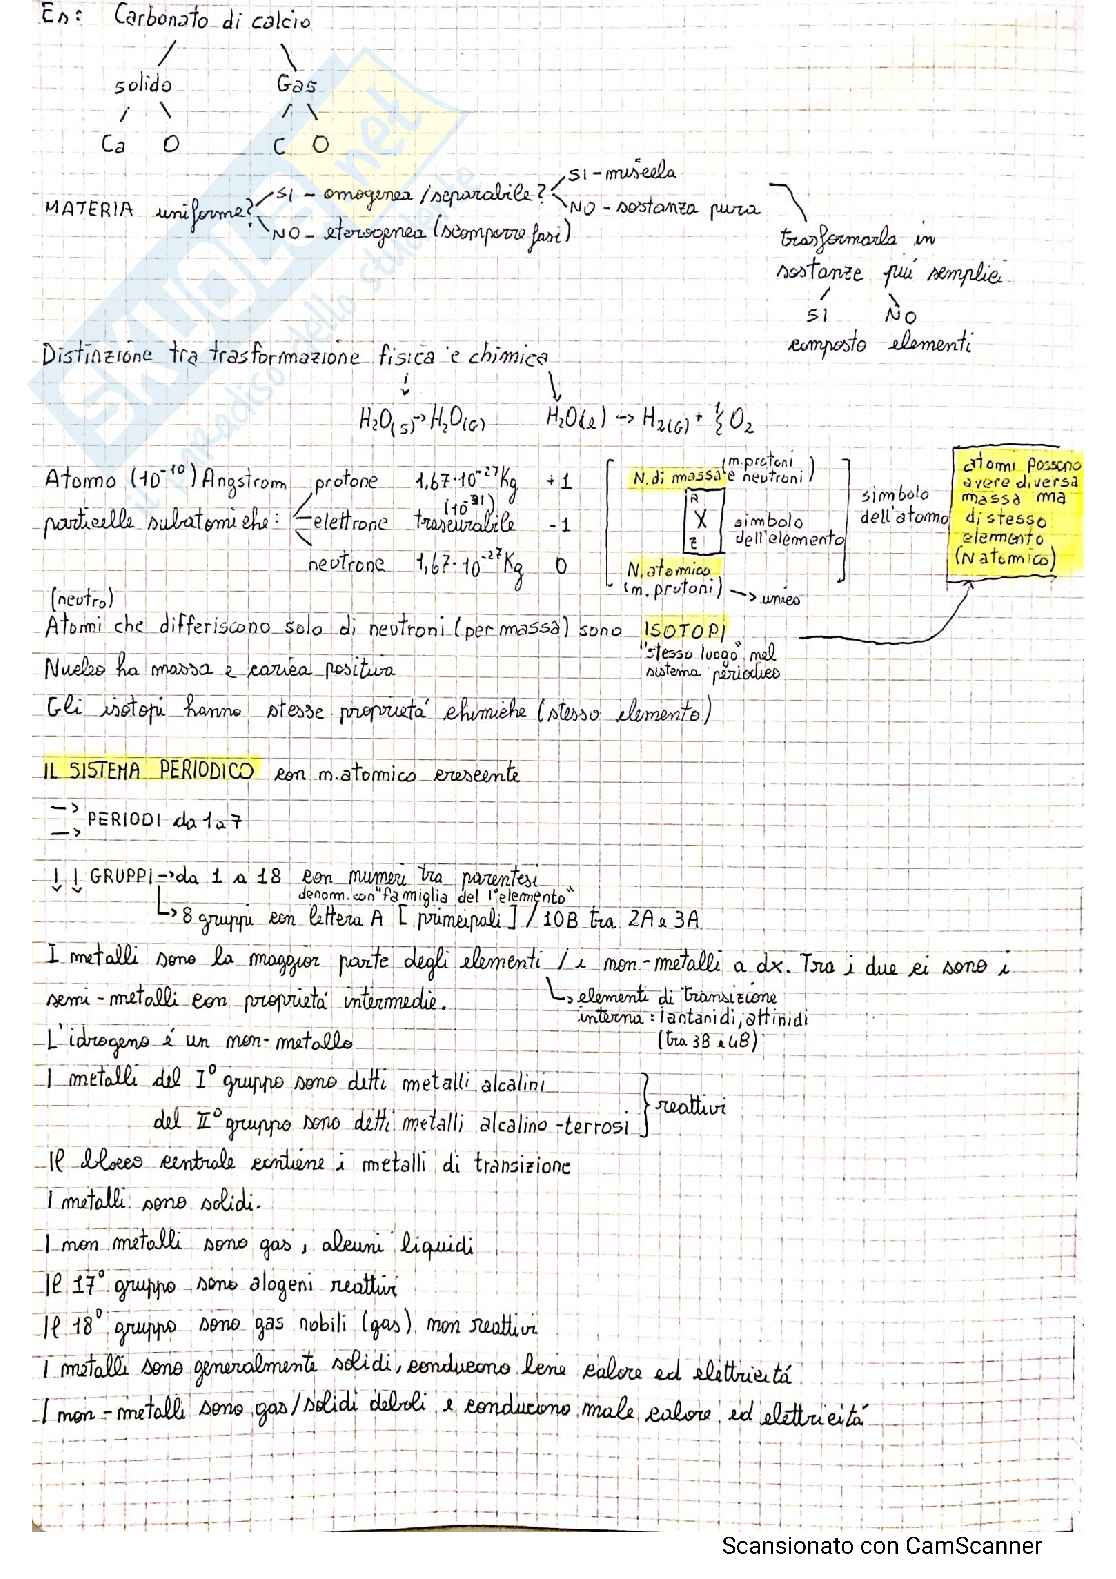 Es: Carbonato di calcio
solido Gas
Ca O C O
MATERIA uniforme? SI - omogenea / separabile? SI - miscela
NO - sostanza pura
NO - eterogenea (scomporre fasi)
trasformarla in
sostanze più semplici
SI NO
composto elementi
Distinzione tra trasformazione fisica e chimica
H2O(s) → H2O(G) H2O(l) → H2(G) + ½ O2
Atomo (10^-10) Angstrom
particelle subatomiche:
protone 1,67·10^-27 Kg +1
elettrone trascurabile (10^-31) -1
neutrone 1,67·10^-27 Kg 0
N. di massa (n. protoni e neutroni)
A
X simbolo dell'elemento
Z
N. atomico (n. protoni) → unico
simbolo dell'atomo
atomi possono
avere diversa
massa ma
di stesso
elemento
(N atomico)
(neutro)
Atomi che differiscono solo di neutroni (per massa) sono ISOTOPI
"stesso luogo" nel
sistema periodico
Nucleo ha massa e carica positiva
Gli isotopi hanno stesse proprietá chimiche (stesso elemento)
IL SISTEMA PERIODICO con n. atomico crescente
→ PERIODI da 1 a 7
↓↓ GRUPPI → da 1 a 18 con numeri tra parentesi
denom. con "famiglia del 1° elemento"
↳ 8 gruppi con lettera A [principali] / 10B tra 2A e 3A
I metalli sono la maggior parte degli elementi / i non-metalli a dx. Tra i due ci sono i
semi-metalli con proprietá intermedie.
↳ elementi di transizione
interna: lantanidi, attinidi
(tra 3B e 4B)
L'idrogeno é un non-metallo
I metalli del I° gruppo sono detti metalli alcalini
del II° gruppo sono detti metalli alcalino-terrosi
reattivi
Il blocco centrale contiene i metalli di transizione
I metalli sono solidi.
I non metalli sono gas, alcuni liquidi
Il 17° gruppo sono alogeni reattivi
Il 18° gruppo sono gas nobili (gas) non reattivi
I metalli sono generalmente solidi, conducono bene calore ed elettricitá
I non-metalli sono gas/solidi deboli e conducono male calore ed elettricitá
Scansionato con CamScanner